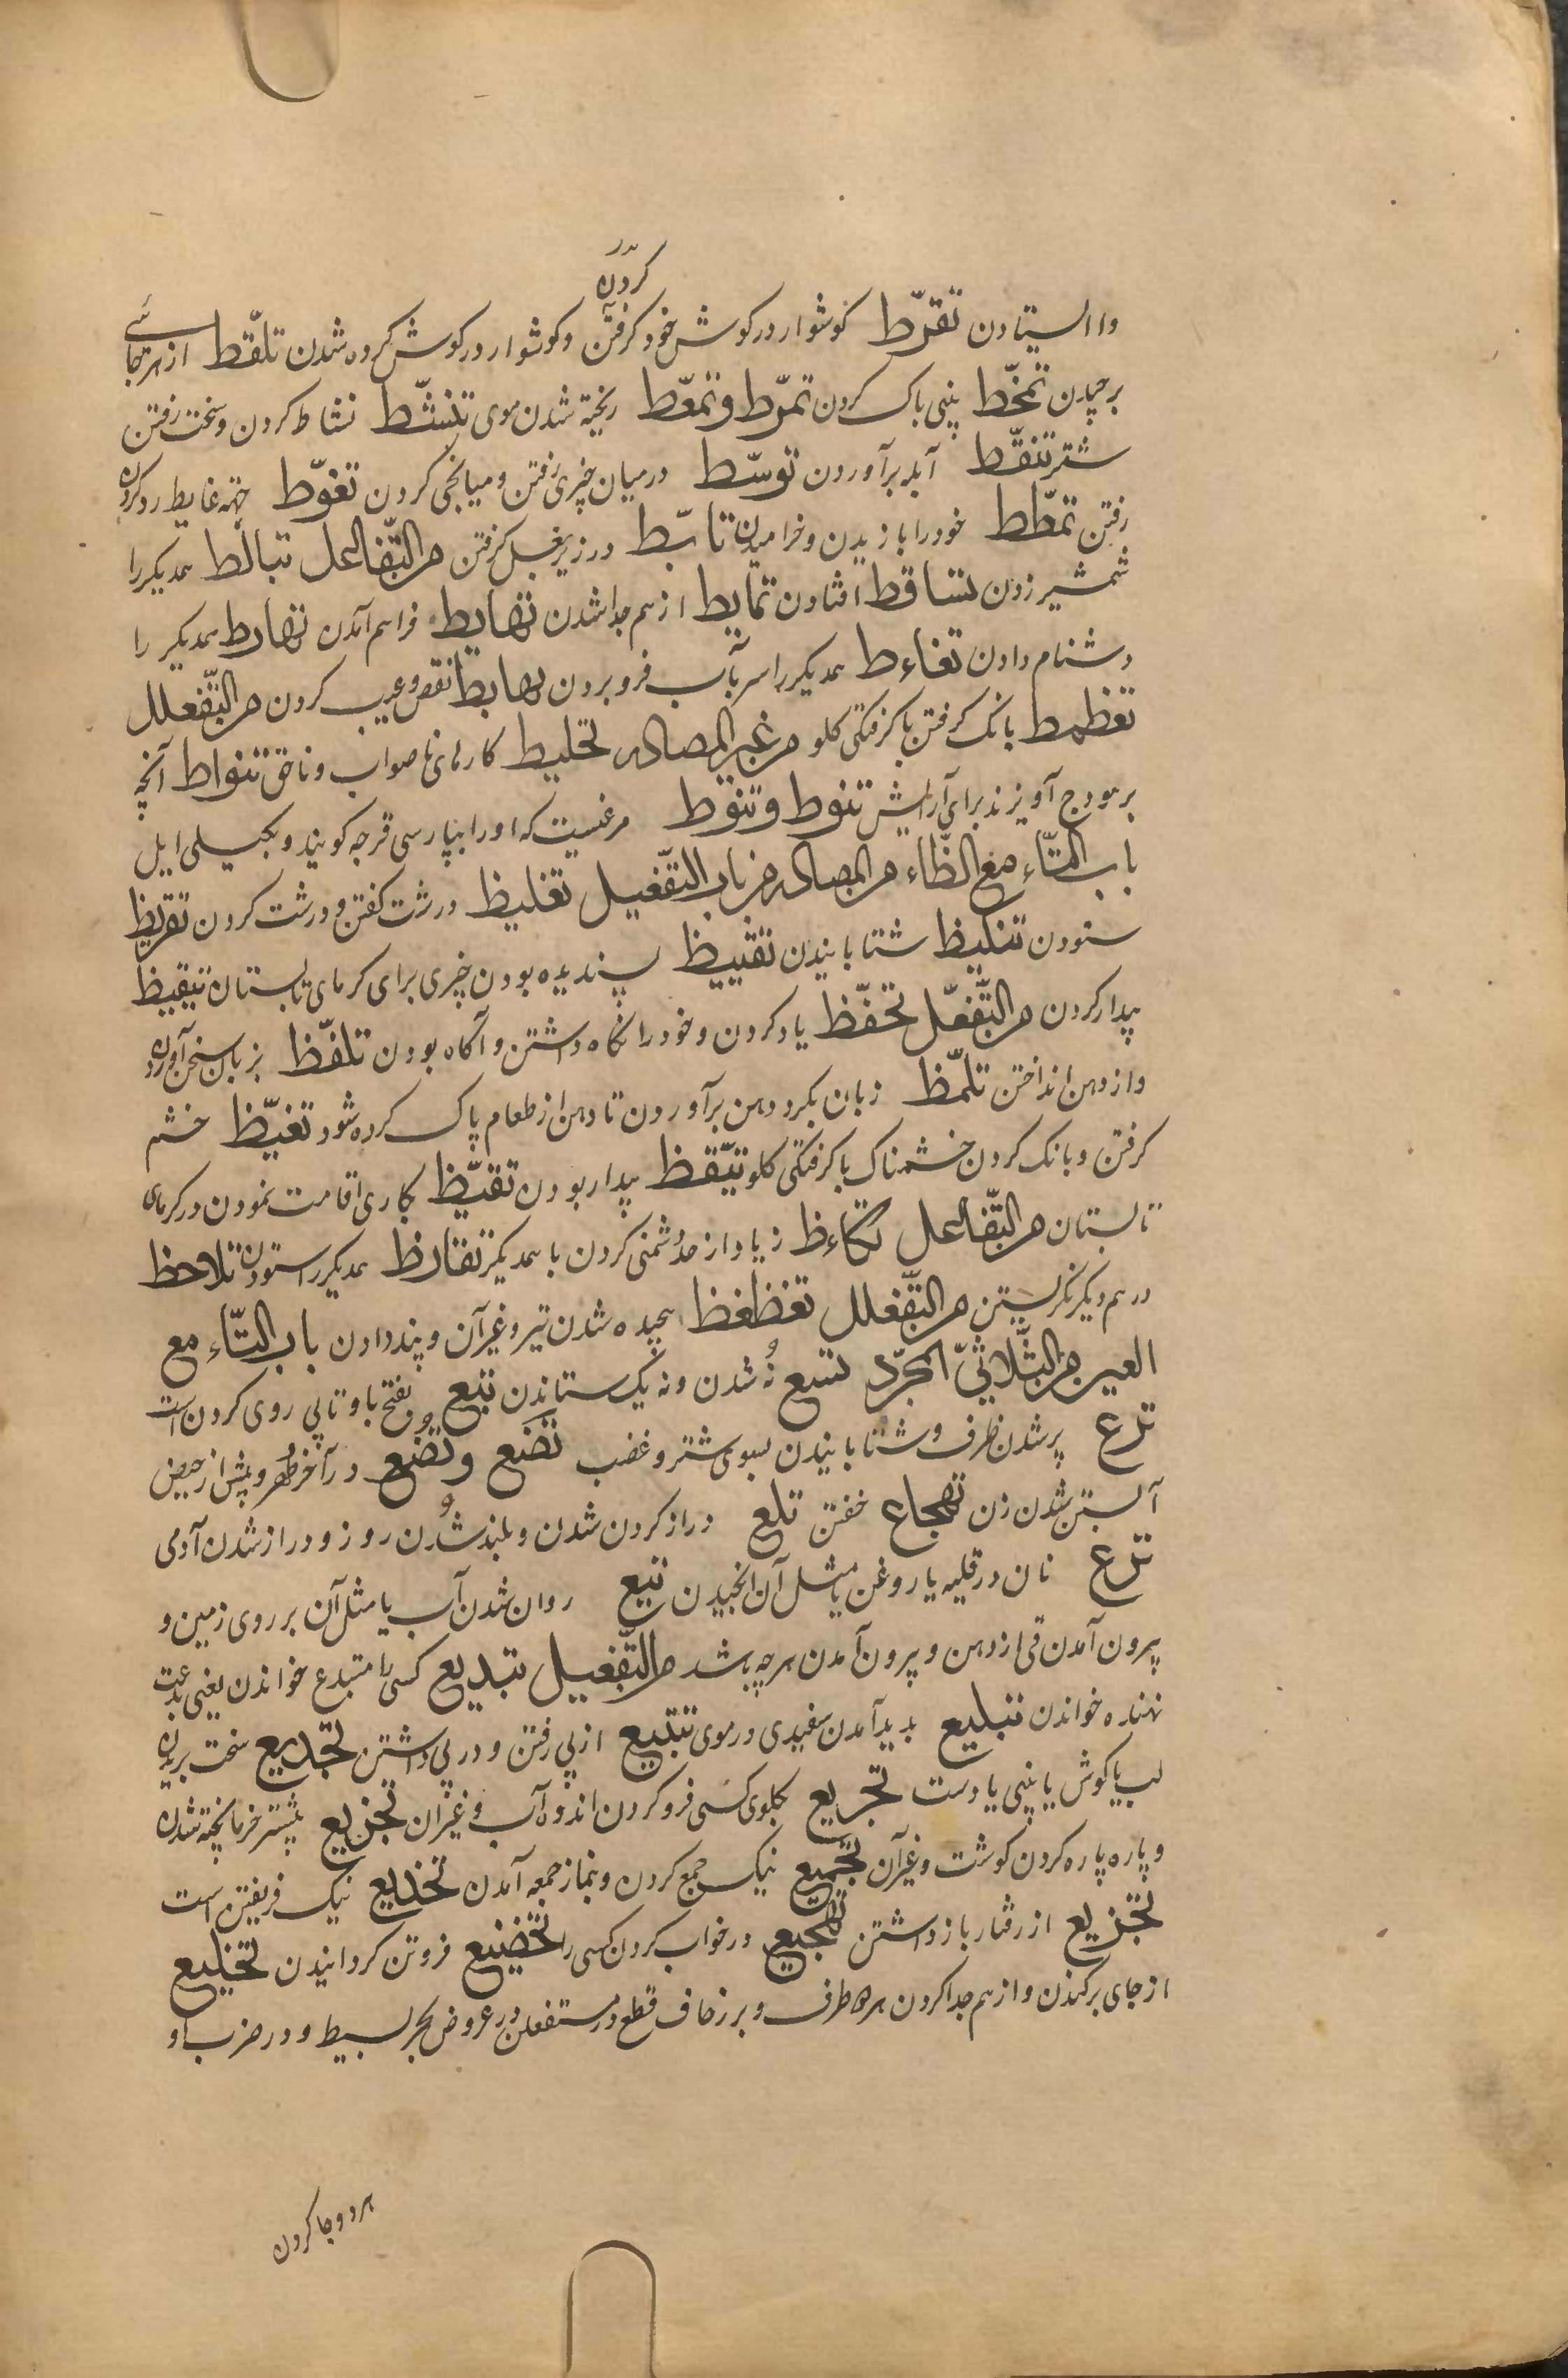 کردن
وا ایستادن تقرّط کوشوار در کوش خود کرفتن و کوشوار در کوش کرده شدن تلقّط از هر جائے
برچیدن تمخّط بینی پاک کردن تمرّط وتمعّط ریخته شدن موی تنشّط نشاط کردن و سخت رفتن
شتر تنقّط آبله برآوردن توسّط در میان چیزی رفتن و میانجی کردن تغوّط جهة غایط رد کردن
رفتن تمطّط خود را یازیدن و خرامیدن تابّط در زیر بغل کرفتن من التّفاعل تبالط همدیکر را
شمشیر زدن تساقط افتادن تمایط از هم جدا شدن تهایط فراهم آمدن تهارط همدیکر را
دشنام دادن تغاءط همدیکر را سر بآب فرو بردن تهابط نقص و عیب کردن من التّفعلل
تغطمط بانک کرفتن با کرفتکی کلو من غیر المصادر تخلیط کارهای ناصواب و ناحق تنواط آنچه
بر هودج آویزند برای آرایش تنوط وتنوط مرغیست که او را بپارسی قرجه کویند و بکیلی ایل
باب التّاء مع الظّاء من المصادر من باب التّفعیل تغلیظ درشت کفتن و درشت کردن تقریظ
ستودن تنکیظ شتابانیدن تقییظ پسندیده بودن چیزی برای کرمای تابستان تیقیظ
بیدار کردن من التّفعّل تحفّظ یاد کردن و خود را نکاه داشتن و آکاه بودن تلفّظ بزبان سخن آوردن
و از دهن انداختن تلمّظ زبان بکرد دهن برآوردن تا دهن از طعام پاک کرده شود تغیّظ خشم
کرفتن و بانک کردن خشمناک با کرفتکی کلو تیّقظ بیدار بودن تقیّظ بکاری اقامت نمودن در کرمای
تابستان من التّفاعل تکاءظ زیاد از حد دشمنی کردن با همدیکر تقارظ همدیکر را ستودن تلاحظ
در هم دیکر نکریستن من التّفعلل تعظعظ پیچیده شدن تیر و غیر آن و پند دادن باب التّاء مع
العین من الثّلاثیّ المجرّد تسع نُه شدن و نه یک ستاندن تبع بفتح با و تا پی روی کردن است
ترع پر شدن ظرف و شتابانیدن بسوی شتر و غضب تضَع وتُضُع در آخر طُهر و پیش از حیض
آبستن شدن زن تهجاع خفتن تلع دراز کردن شدن و بلند شُدن روز و دراز شدن آدمی
ترع نان در قلیه یا روغن یا مثل آن انجیدن تیع روان شدن آب یا مثل آن بر روی زمین و
بیرون آمدن قی از دهن و بیرون آمدن هر چه باشد من التّفعیل تبدیع کسی را مبتدع خواندن یعنی بدعت
نهنده خواندن تبلیع بدید آمدن سفیدی در موی تتبیع از پی رفتن و در پی داشتن تجدیع سخت بریدن
لب یا کوش یا بینی یا دست تجریع بکلوی کسی فرو کردن اندوه آب و غیر آن تجزیع بیشتر خرما پخته شدن
و پاره پاره کردن کوشت و غیر آن تجمیع نیک جمع کردن و بنماز جمعه آمدن تخدیع نیک فریفتن است
تخزیع از رفتار باز داشتن تهجیع در خواب کردن کسی را تخضیع فروتن کردانیدن تخلیع
از جای برکندن و از هم جدا کردن هر دو طرف و بر زحاف قطع در مستفعلن در عروض بحر بسیط و در ضرب او
هر دو جا کردن